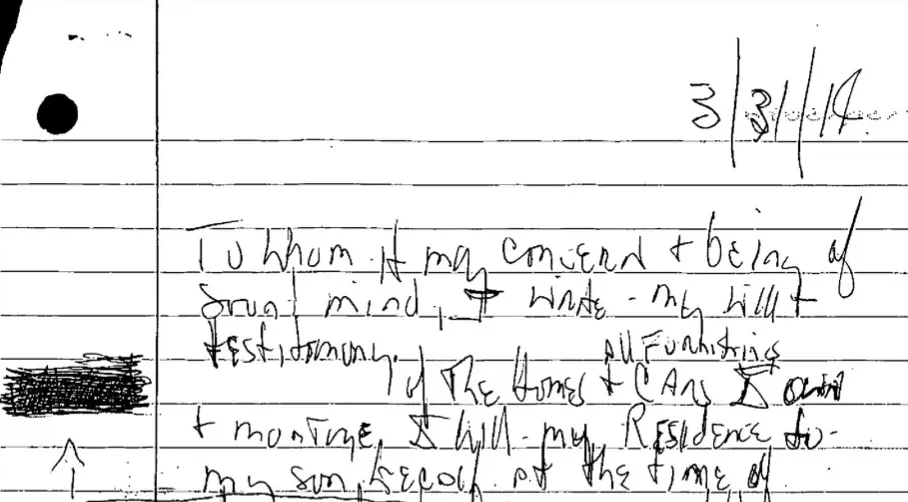 3/31/14
To Whom it may concern + being of
sound mind, I write my will +
testitomony.
all Furnitshings
Of The Homes + CArs I own
+ mortgage, I will my Residence to
my son, Kecalf at the time of